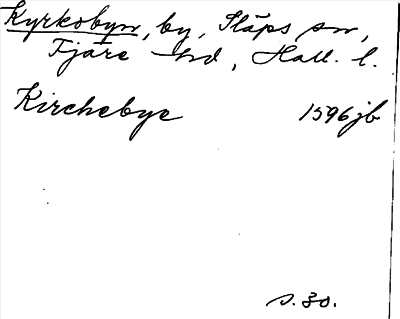 Kyrkobyn, by, Släps sn,
Fjäre hd, Hall. l.
Kirchebye 1596 jb
s. 30.